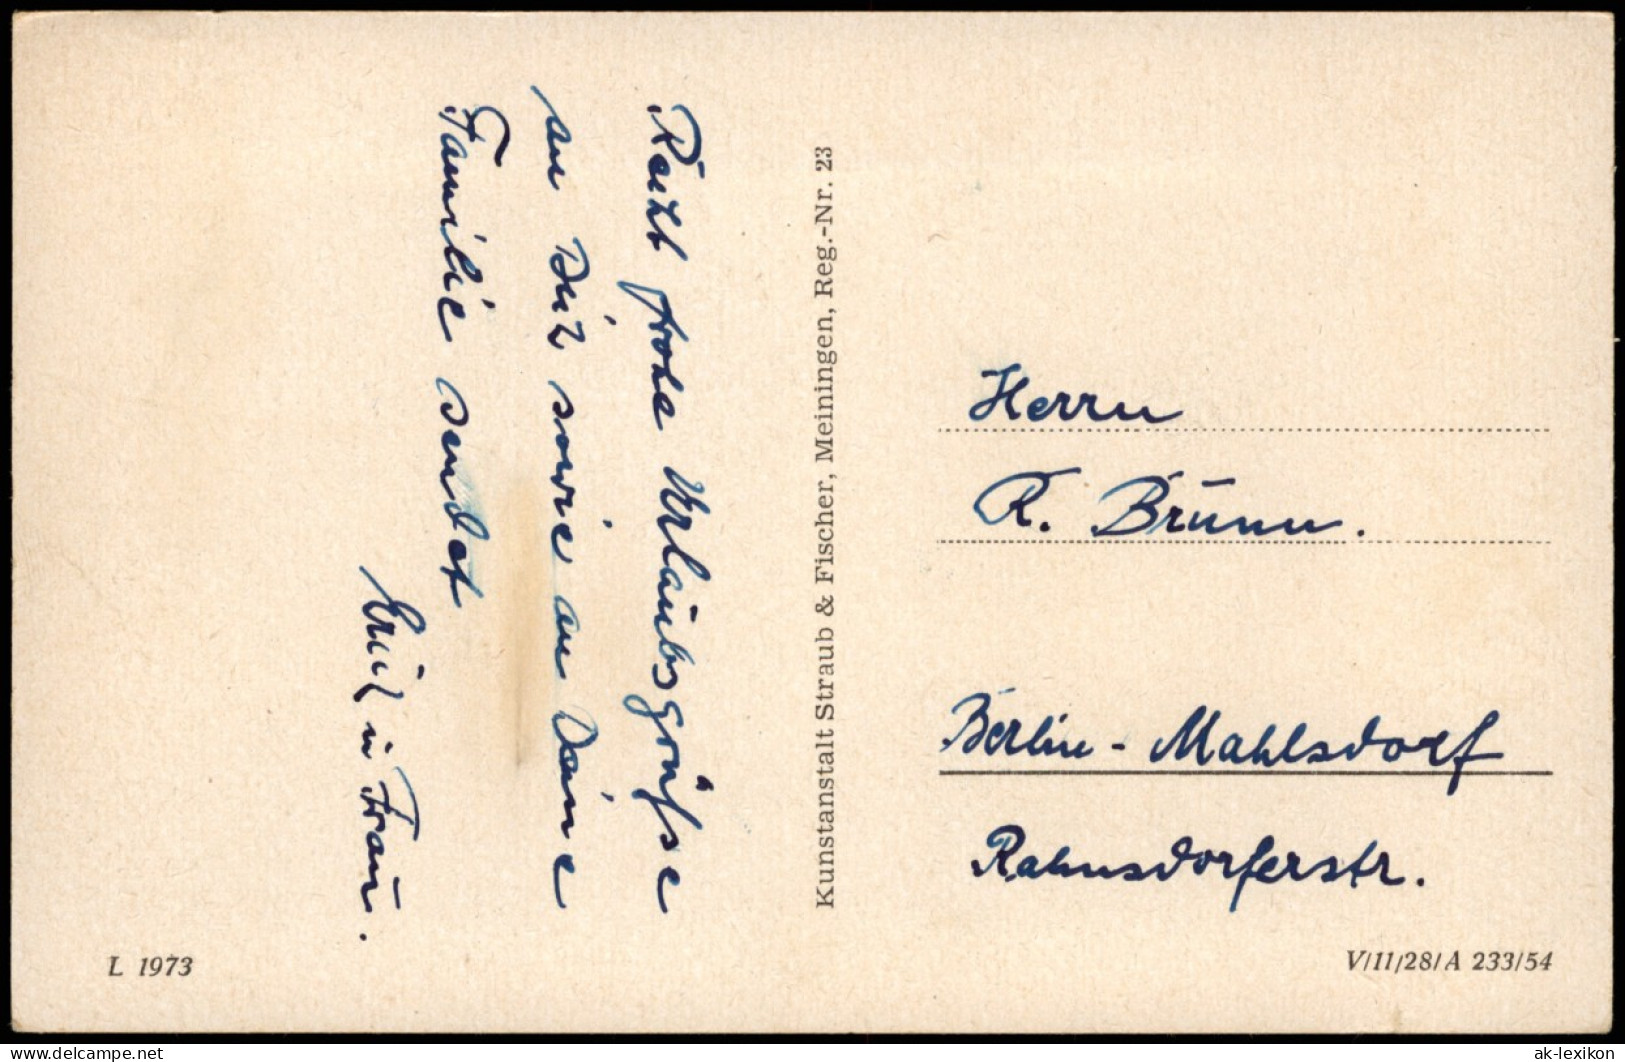 Recht frohe Urlaubsgrüsse
an Dich sowie an Deine
Familie sendet
Erich u Frau.
Kunstanstalt Straub & Fischer, Meiningen, Reg.-Nr. 23
Herrn
R. Brunn.
Berlin - Mahlsdorf
Rahnsdorferstr.
L 1973
V/11/28/A 233/54
delcampe.net
ak-lexikon